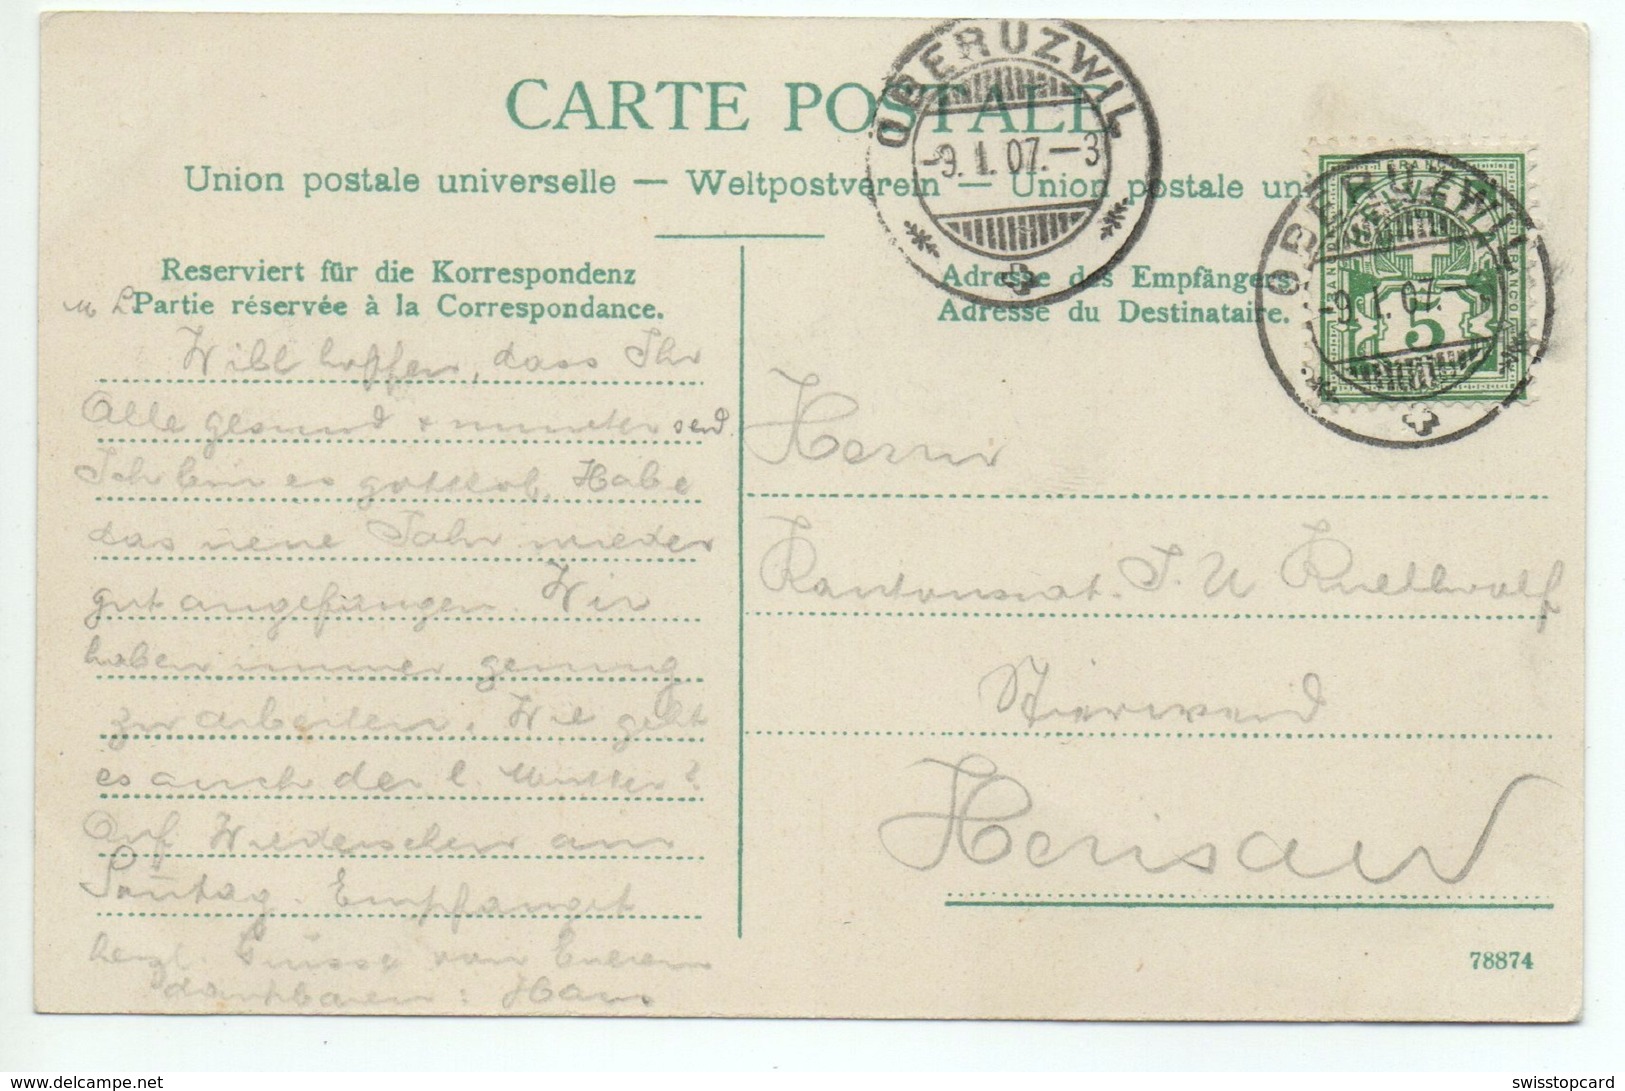 CARTE POSTALE
Union postale universelle — Weltpostverein — Union postale un
OBERUZWIL
-9.1.07.-3
OBERUZWIL
-9.1.07.-
FRANCO
HELVETIA
5
Reserviert für die Korrespondenz
Partie réservée à la Correspondance.
Adresse des Empfängers.
Adresse du Destinataire.
Will hoffen, dass Ihr
Alle gesund + munter seid.
Ich bin es gottlob. Habe
das neue Jahr wieder
gut angefangen. Wir
haben immer genung
zu arbeiten. Wie geht
es auch der l. Mutter?
Auf Wiedersehen am
Sontag. Empfanget
herzl. Grüsse von Euerem
dankbaren: Hans
Herrn
Kantonsrat. J. U
Herisau
78874
www.delcampe.net
swisstopcard